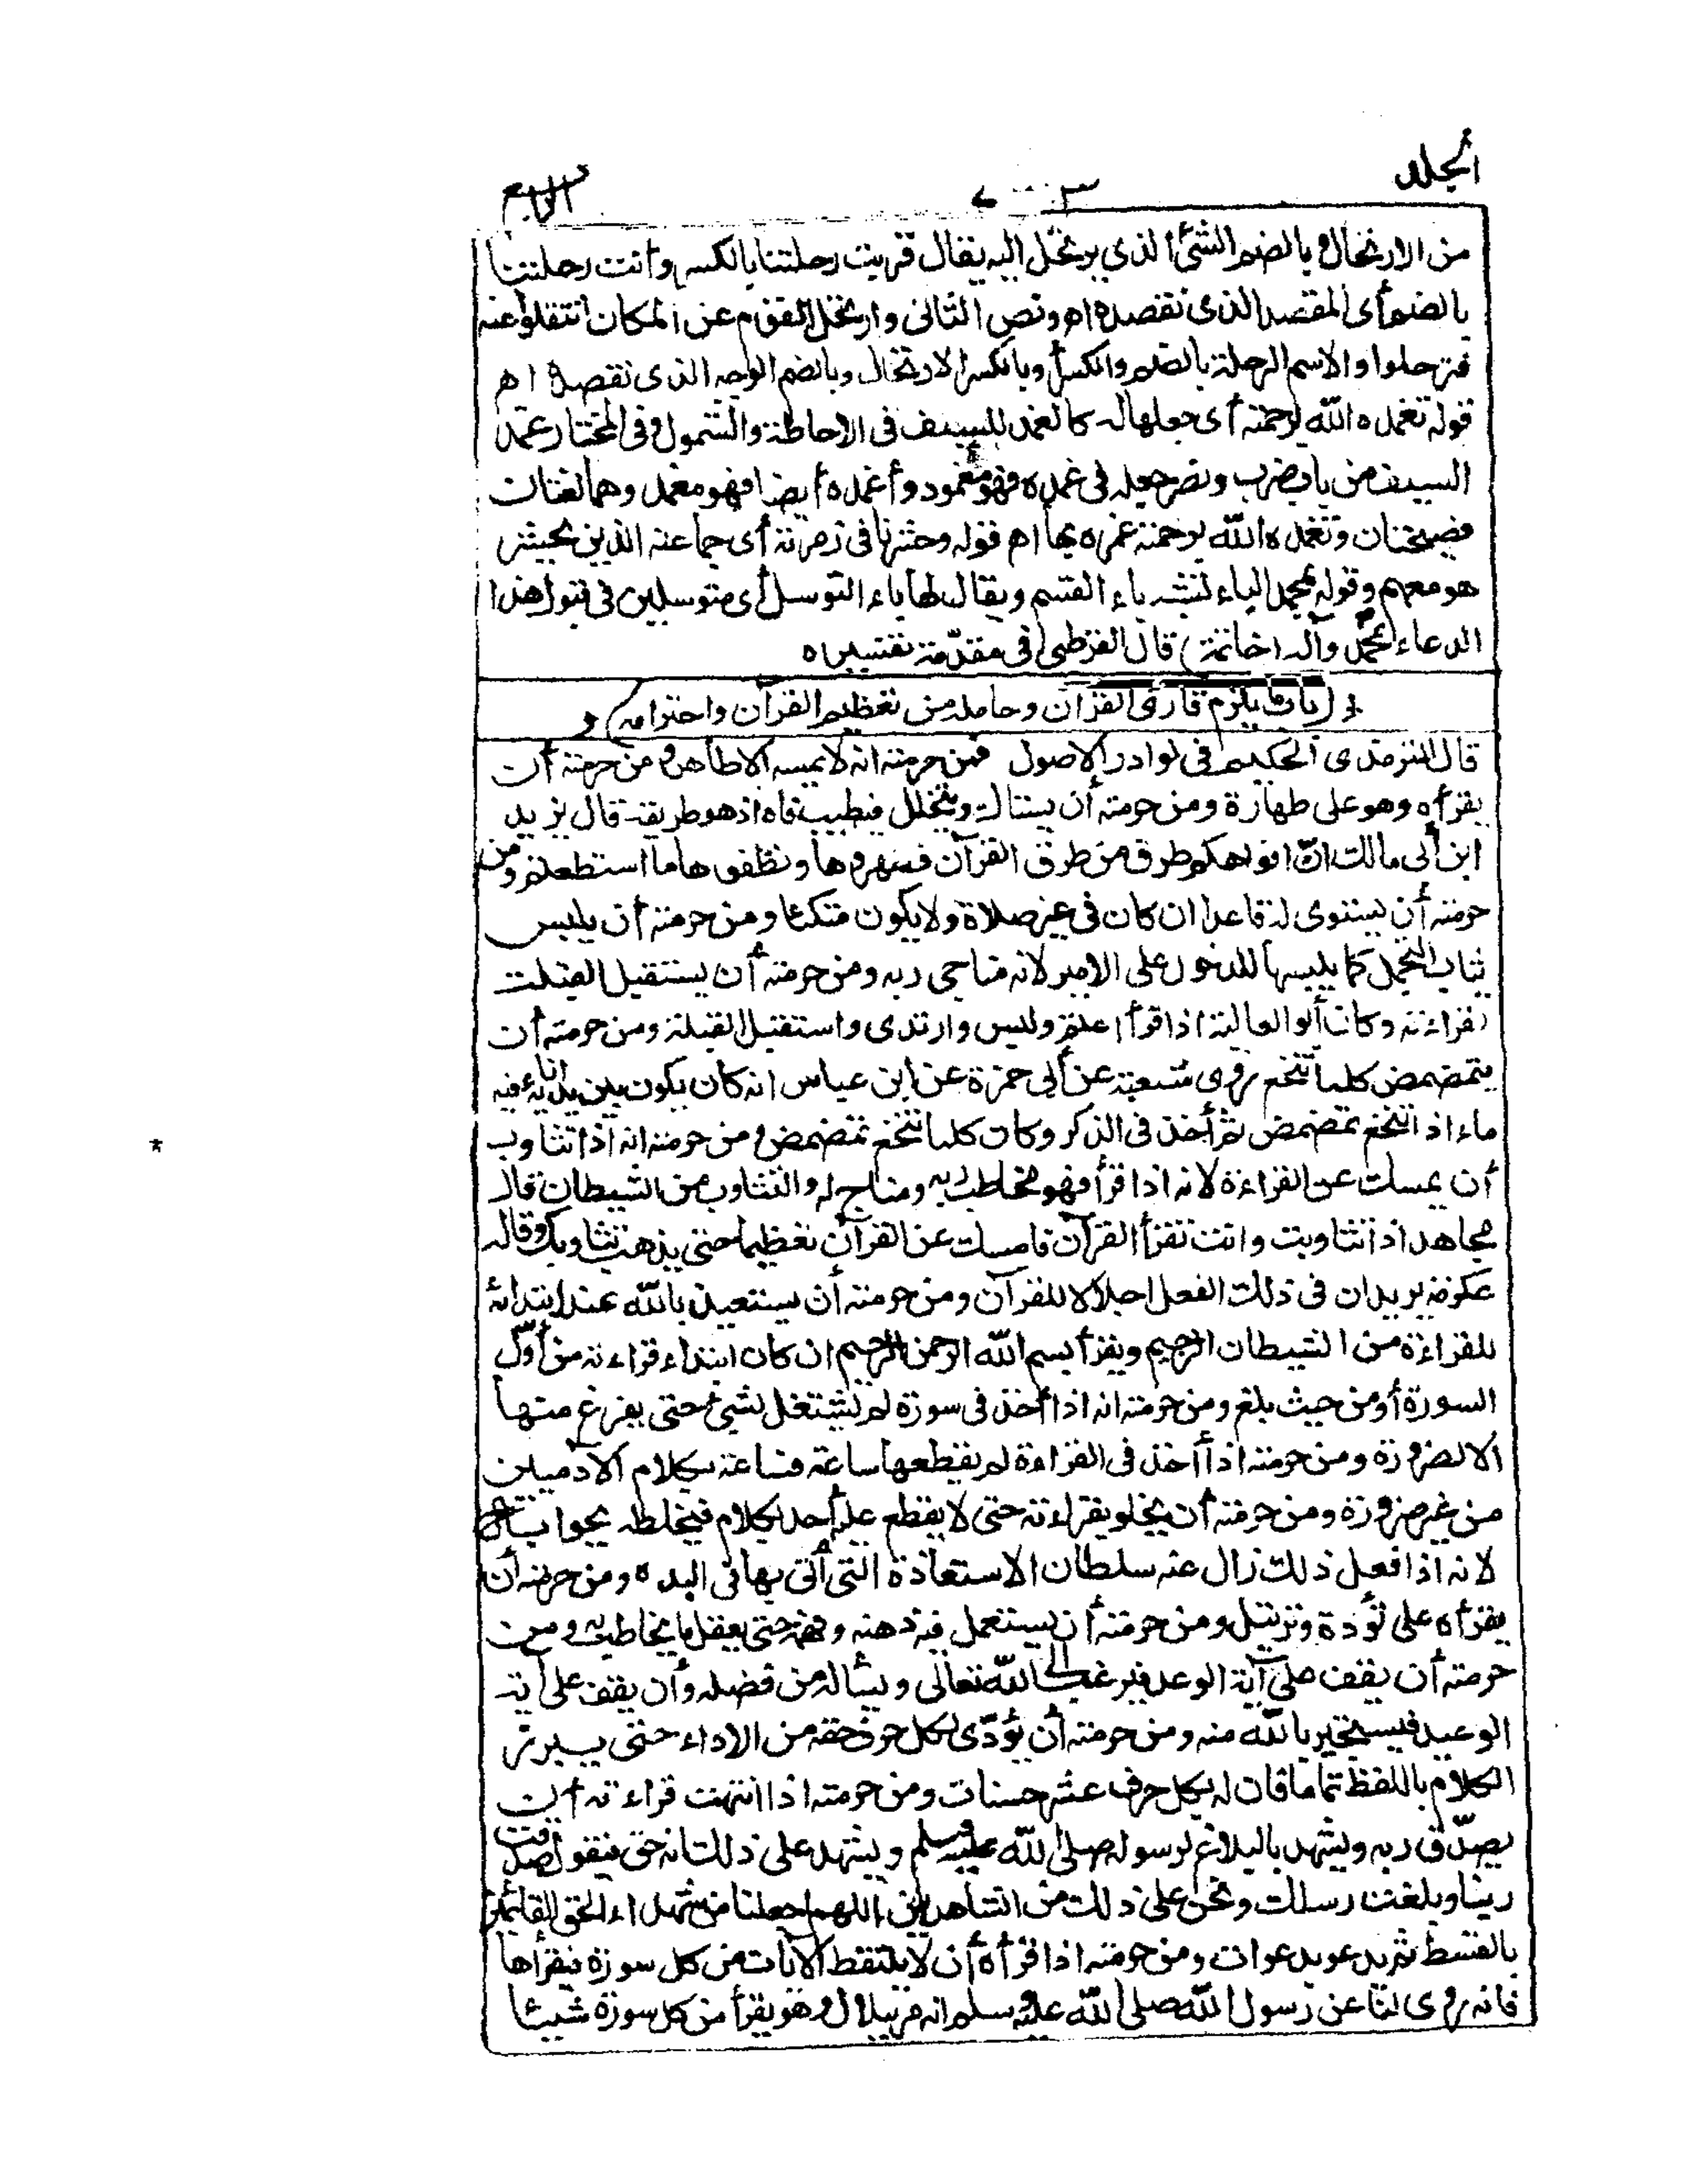 المجلد
الرابع
من الارتحال وبالضم الشئ الذي يرتحل اليه يقال قربت رحلتنا بالكسر وأنت رحلتنا
بالضم أى المقصد الذى نقصده اه ونص الثانى وارتحل القوم عن المكان انتقلوا عنه
فترحلوا والاسم الرحلة بالضم والكسر أو بالكسر الارتحال وبالضم الوجه الذى تقصده اه
قوله تغمده الله برحمته أى جعلها له كالغمد للسيف فى الاحاطة والشمول وفى المختار غمد
السيف من باب ضرب ونصر جعله فى غمده فهو مغمود وأغمده أيضا فهو مغمد وهما لغتان
فصيحتان وتغمده الله برحمته غمره بها اه قوله وحشرنا فى زمرته أى جماعته الذين يحشر
هو معهم وقوله بمحمد الباء تشبه باء القسم ويقال لها باء التوسل أى متوسلين فى قبول هذا
الدعاء بمحمد وآله (خاتمة) قال القرطبى فى مقدمة تفسيره
(باب ما يلزم قارئ القرآن وحامله من تعظيم القرآن واحترامه)
قال الترمذى الحكيم فى نوادر الاصول فمن حرمته انه لا يمسه الا طاهر ومن حرمته أن
يقرأه وهو على طهارة ومن حرمته أن يستاك ويتخلل فيطيب فاه اذ هو طريقه قال يزيد
ابن أبى مالك ان أفواهكم طرق من طرق القرآن فطهروها ونظفوها ما استطعتم ومن
حرمته أن يستوى له قاعدا ان كان فى غير صلاة ولا يكون متكئا ومن حرمته أن يلبس
ثياب التجمل كما يلبسها للدخول على الامير لانه مناجى ربه ومن حرمته أن يستقبل القبلة
لقراءته وكان أبو العالية اذا قرأ اعتم ولبس وارتدى واستقبل القبلة ومن حرمته أن
يتمضمض كلما تنخع روى شعبة عن أبى حمزة عن ابن عباس انه كان يكون بين يديه اناء فيه
ماء اذا تنخع تمضمض ثم أخذ فى الذكر وكان كلما تنخع تمضمض ومن حرمته انه اذا تثاوب
أن يمسك عن القراءة لانه اذا قرأ فهو مخاطب ربه ومناج له والتثاوب من الشيطان قال
مجاهد اذا تثاوبت وانت تقرأ القرآن فامسك عن القرآن تعظيما حتى يذهب تثاوبك وقاله
عكرمة يريد ان فى ذلك الفعل اجلالا للقرآن ومن حرمته أن يستعيذ بالله عند ابتدائه
للقراءة من الشيطان الرجيم ويقرأ بسم الله الرحمن الرحيم ان كان ابتداء قراءته من أول
السورة أو من حيث بلغ ومن حرمته انه اذا أخذ فى سورة لم يشتغل بشئ حتى يفرغ منها
الا لضرورة ومن حرمته اذا أخذ فى القراءة لم يقطعها ساعة فساعة بكلام الآدميين
من غير ضرورة ومن حرمته أن يخلو بقراءته حتى لا يقطع عليه أحد بكلام فيخلطه بجوابه
لانه اذا فعل ذلك زال عنه سلطان الاستعاذة التى أتى بها فى البدء ومن حرمته أن
يقرأه على تؤدة وترتيل ومن حرمته أن يستعمل فيه ذهنه وفهمه حتى يعقل ما يخاطب به ومن
حرمته أن يقف على آية الوعد فيرغب الى الله تعالى ويسأله من فضله وأن يقف على آية
الوعيد فيستجير بالله منه ومن حرمته أن يؤدى لكل حرف حقه من الاداء حتى يبرز
الكلام باللفظ تماما فان له بكل حرف عشر حسنات ومن حرمته اذا انتهت قراءته أن
يصدق ربه ويشهد بالبلاغ لرسوله صلى الله عليه وسلم ويشهد على ذلك انه حق فيقول صدقت
ربنا وبلغت رسلك ونحن على ذلك من الشاهدين اللهم اجعلنا من شهداء الحق القائمين
بالقسط ثم يدعو بدعوات ومن حرمته اذا قرأه أن لا يلتقط الآيات من كل سورة فيقرأها
فانه روى لنا عن رسول الله صلى الله عليه وسلم انه مر ببلال وهو يقرأ من كل سورة شيئا